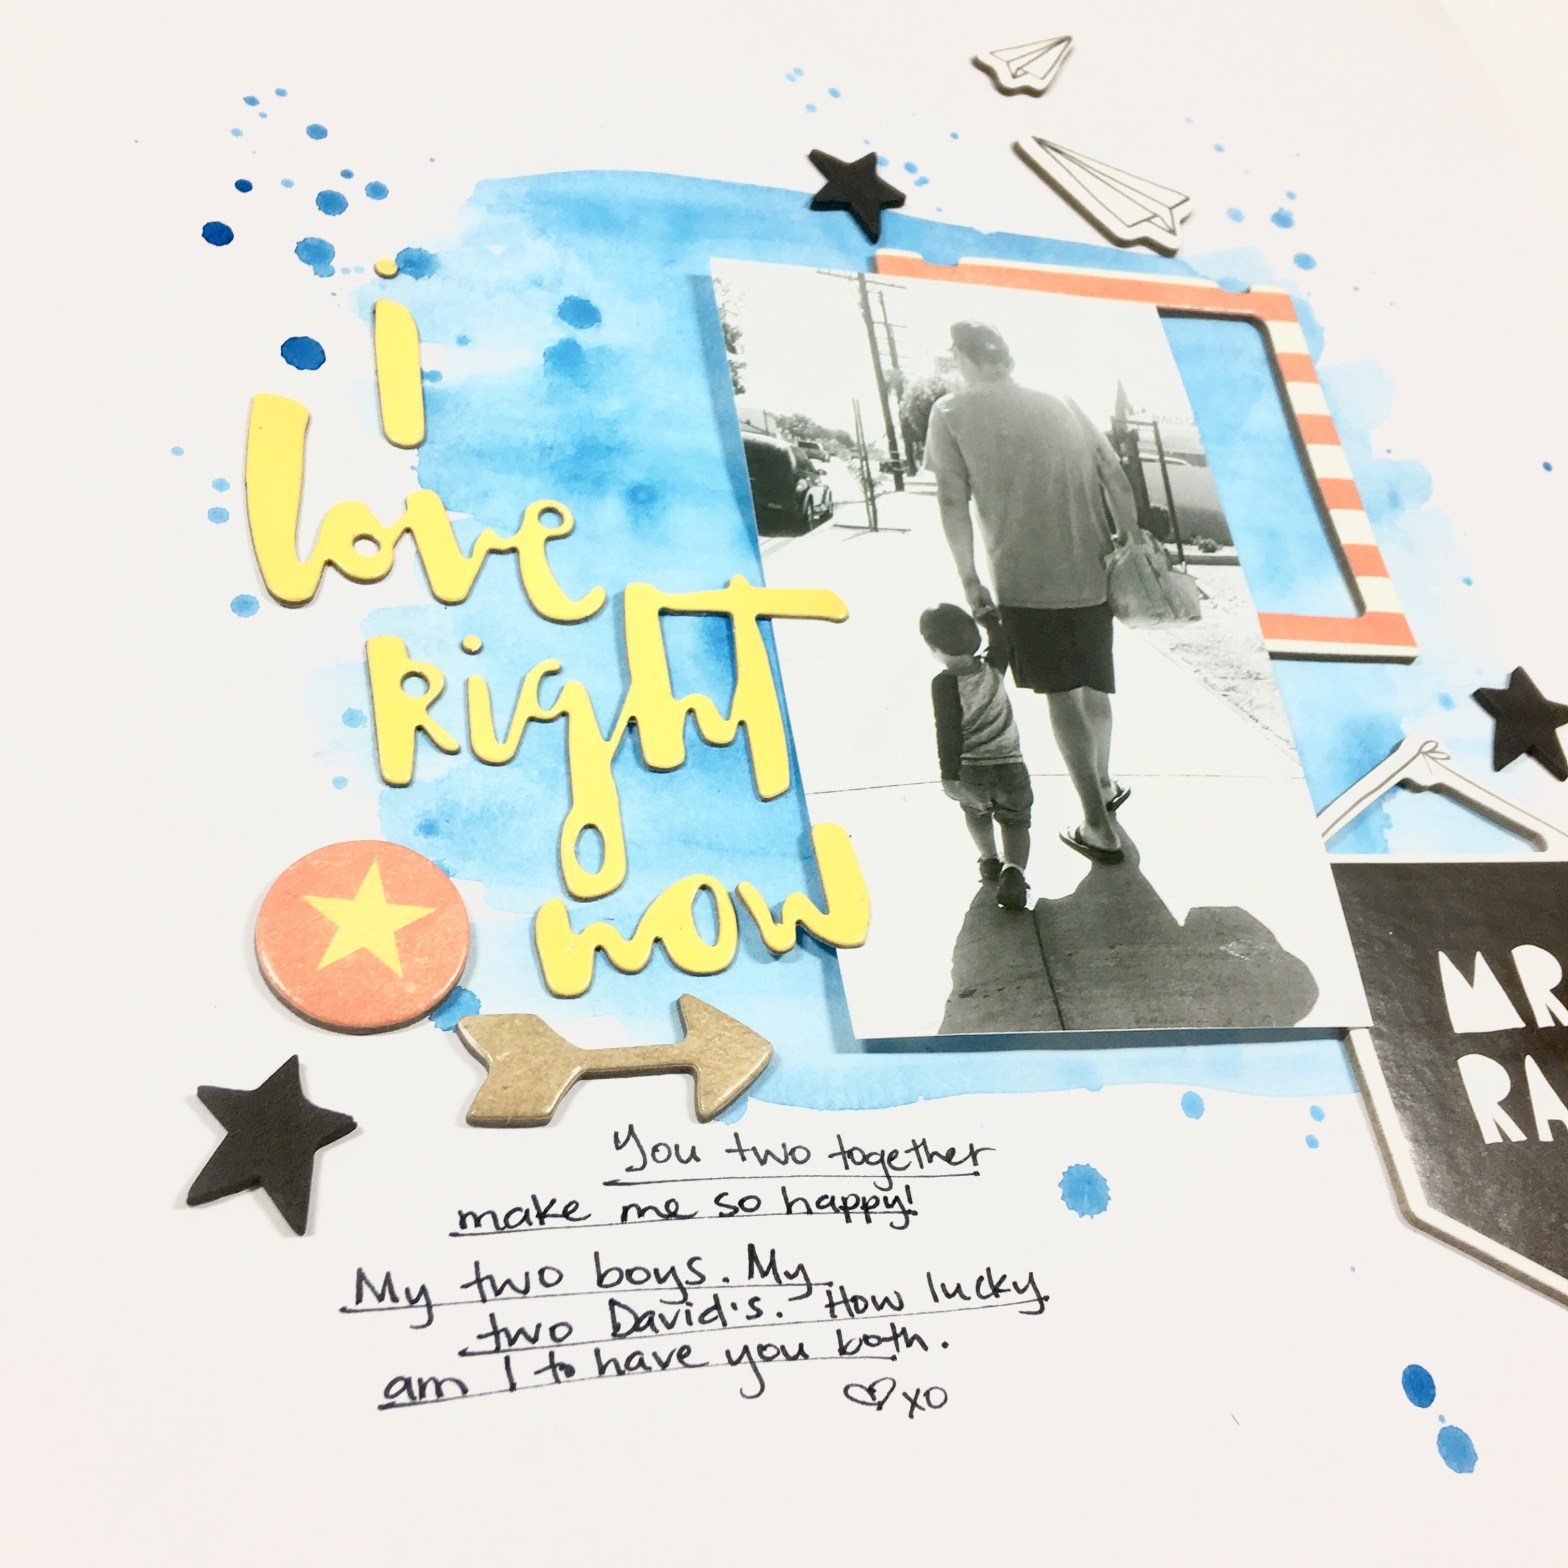 i
love
Right
now
MR
RA
You two together
make me so happy!
My two boys. My
two David's. How lucky
am I to have you both.
xo